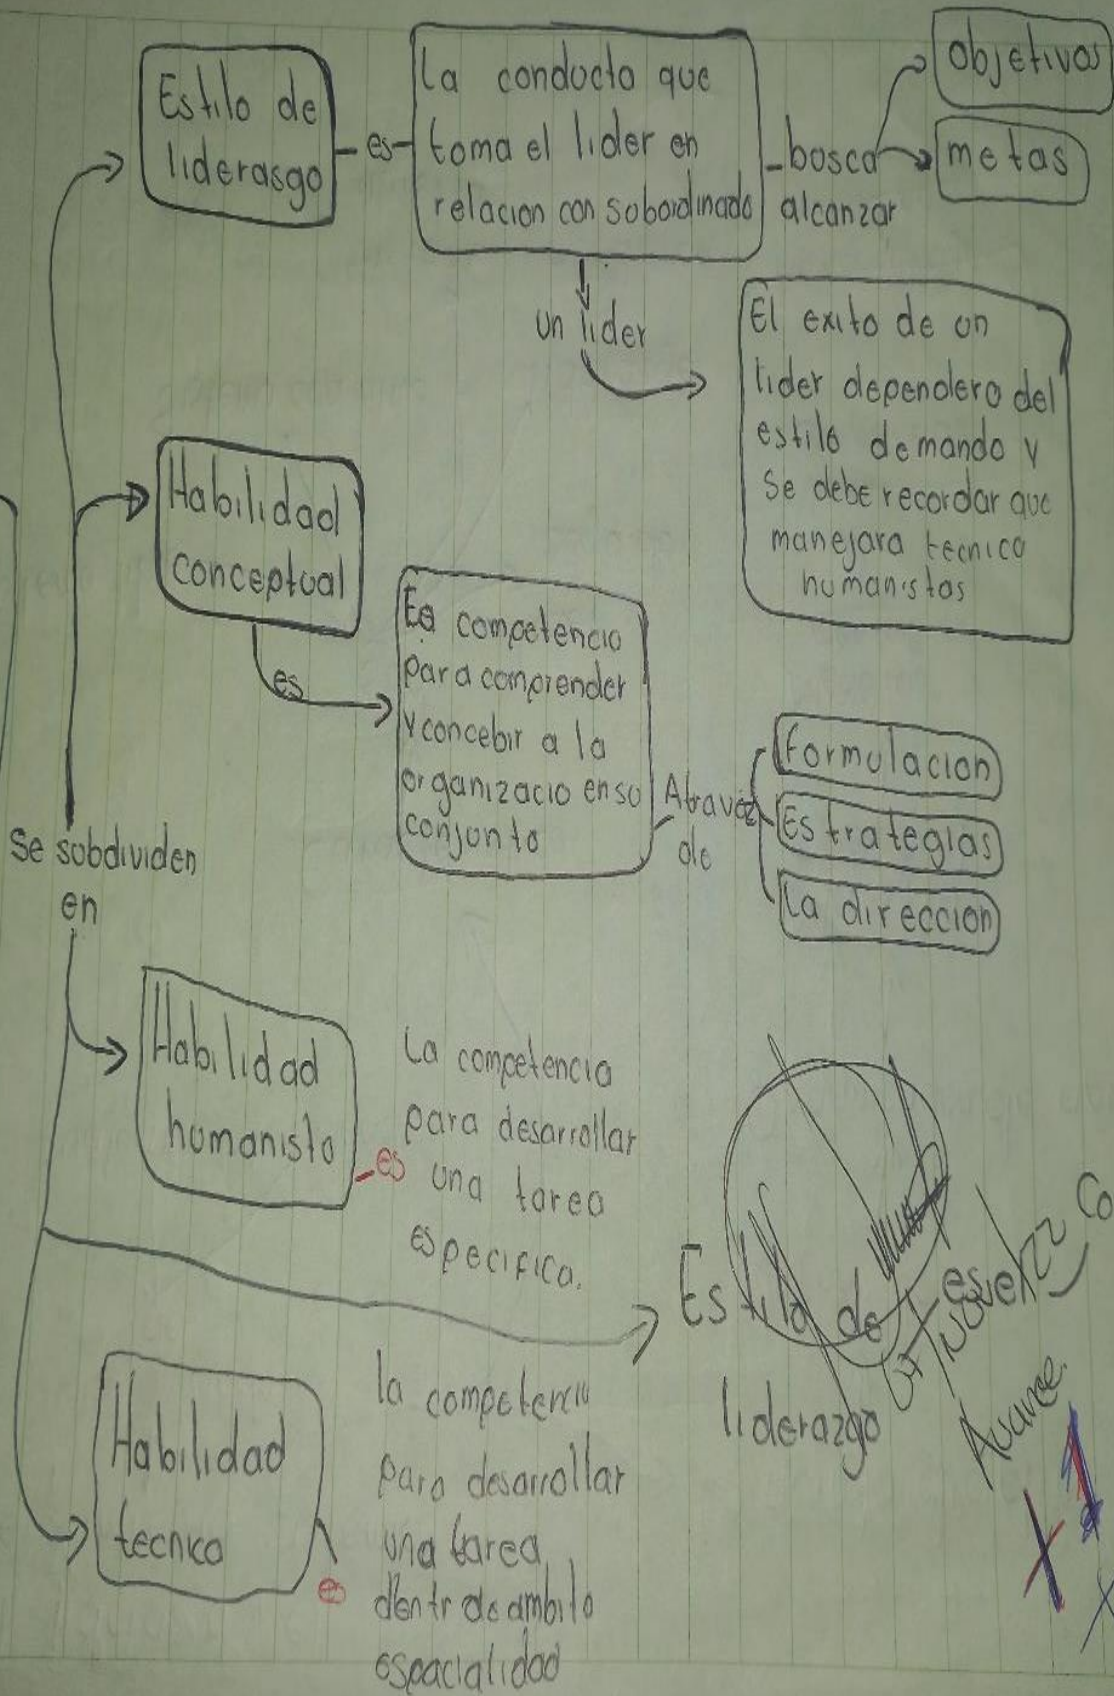 Estilo de
liderasgo
es
La conducta que
toma el lider en
relacion con subordinado
busca
alcanzar
objetivos
metas
un lider
El exito de un
lider dependera del
estilo de mando y
Se debe recordar que
manejara tecnica
humanistas
Habilidad
conceptual
es
competencia
para comprender
y concebir a la
organizacio en su
conjunto
Atravez
de
Formulacion
Estrategias
La direccion
Se subdividen
en
Habilidad
humanista
es
La competencia
para desarrollar
una tarea
especifica.
Estilo de
liderazgo
es
Co
Avance.
Habilidad
tecnica
es
la competencia
para desarrollar
una tarea
dentr de ambito
espacialidad